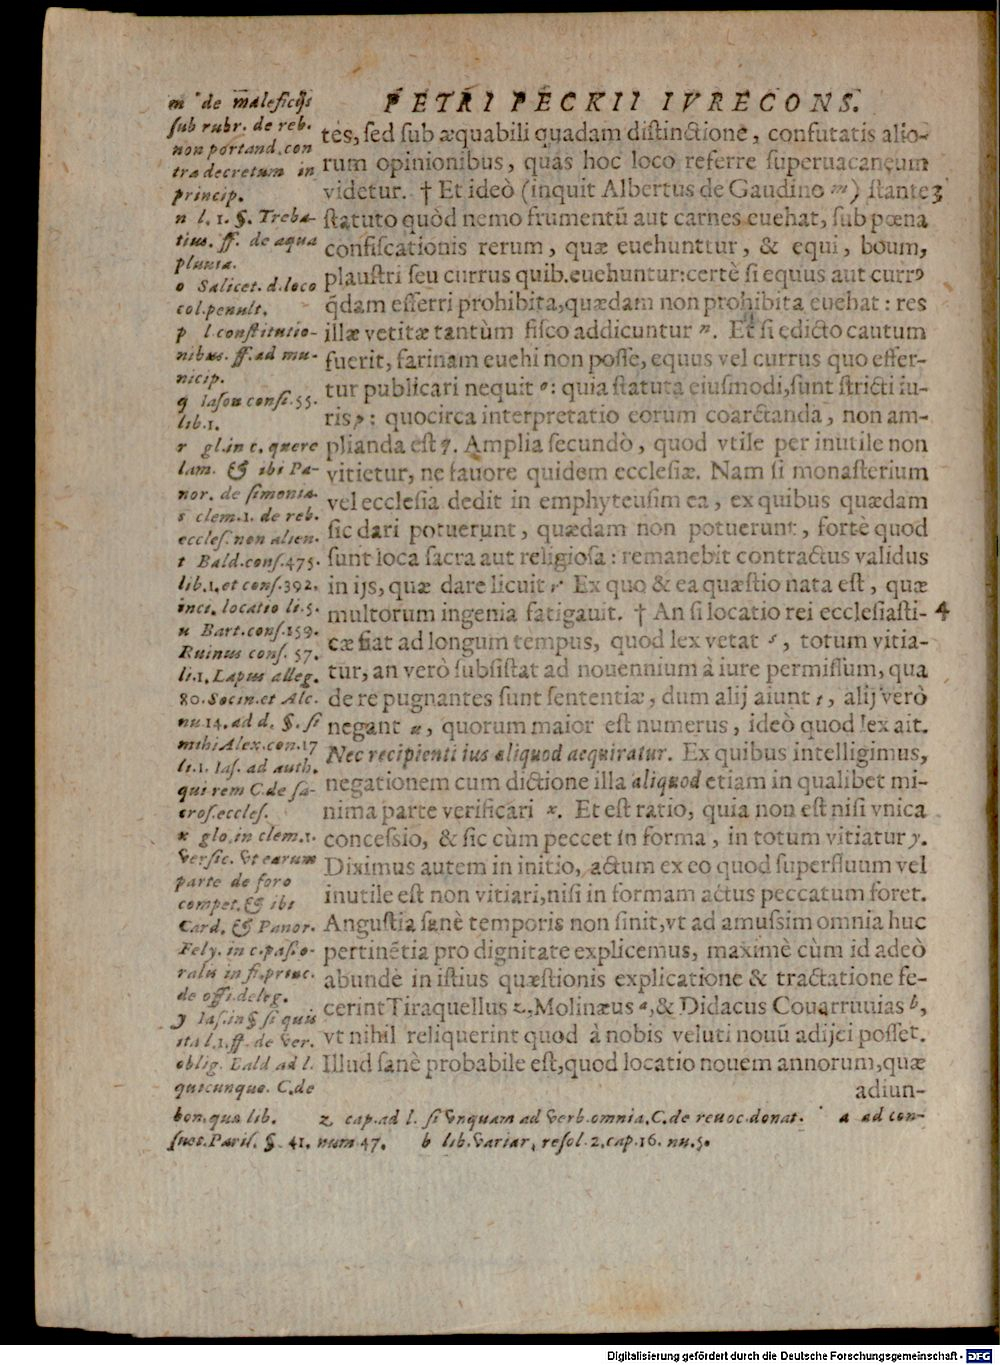 PETRI PECKII IVRECONS.
tes, sed sub æquabili quadam distinctione, confutatis alio-
rum opinionibus, quas hoc loco referre superuacaneum
videtur. † Et ideò (inquit Albertus de Gaudino m) stante 3
statuto quòd nemo frumentũ aut carnes euehat, sub pœna
confiscationis rerum, quæ euehunttur, & equi, boum,
plaustri seu currus quib. euehuntur: certè si equus aut curr⁹
q̃dam efferri prohibita, quædam non prohibita euehat: res
illæ vetitæ tantùm fisco addicuntur n. Et si edicto cautum
fuerit, farinam euehi non posse, equus vel currus quo effer-
tur publicari nequit o: quia statuta eiusmodi, sunt stricti iu-
ris p: quocirca interpretatio eorum coarctanda, non am-
plianda est q. Amplia secundò, quod vtile per inutile non
vitietur, ne fauore quidem ecclesiæ. Nam si monasterium
vel ecclesia dedit in emphyteusim ea, ex quibus quædam
sic dari potuerunt, quædam non potuerunt, fortè quod
sunt loca sacra aut religiosa: remanebit contractus validus
in ijs, quæ dare licuit r. Ex quo & ea quæstio nata est, quæ
multorum ingenia fatigauit. † An si locatio rei ecclesiasti- 4
cæ fiat ad longum tempus, quod lex vetat s, totum vitia-
tur, an verò subsistat ad nouennium à iure permissum, qua
de re pugnantes sunt sententiæ, dum alij aiunt t, alij verò
negant u, quorum maior est numerus, ideò quod lex ait.
Nec recipienti ius aliquod acquiratur. Ex quibus intelligimus,
negationem cum dictione illa aliquod etiam in qualibet mi-
nima parte verificari x. Et est ratio, quia non est nisi vnica
concessio, & sic cùm peccet in forma, in totum vitiatur y.
Diximus autem in initio, actum ex eo quod superfluum vel
inutile est non vitiari, nisi in formam actus peccatum foret.
Angustia sanè temporis non sinit, vt ad amussim omnia huc
pertinẽtia pro dignitate explicemus, maximè cùm id adeò
abundè in istius quæstionis explicatione & tractatione fe-
cerint Tiraquellus z, Molinæus a, & Didacus Couarruuias b,
vt nihil reliquerint quod à nobis veluti nouũ adijci posset.
Illud sanè probabile est, quod locatio nouem annorum, quæ
adiun-
m de maleficijs
sub rubr. de reb.
non portand. con
tra decretum in
princip.
n l. 1. §. Treba-
tius. ff. de aqua
pluuia.
o Salicet. d. loco
col. penult.
p l. constitutio-
nibus. ff. ad mu-
nicip.
q Iason consi. 55.
lib. 1.
r gl. in c. quere
lam. & ibi Pa-
nor. de simonia.
s clem. 1. de reb.
eccles. non alien.
t Bald. cons. 475.
lib. 1. et cons. 392.
inci. locatio li. 5.
u Bart. cons. 159.
Ruinus cons. 57.
li. 1. Lapus alleg.
80. Socin. et Alc.
nu. 14. ad d. §. si
mihi Alex. con. 17
li. 1. Ias. ad auth.
qui rem C. de sa-
cros. eccles.
x glo. in clem. 1.
versic. vt earum
parte de foro
compet. & ibi
Card. & Panor.
Fely. in c. pasto-
ralis in fi. princ.
de offi. deleg.
y Ias. in § si quis
ita l. 1. ff. de ver.
oblig. Bald ad l.
quicunque. C. de
bon. quæ lib. z cap. ad l. si vnquam ad verb. omnia. C. de reuoc. donat. a ad con-
suet. Paris. §. 41. num 47. b lib. variar. resol. 2. cap. 16. nu. 5.
Digitalisierung gefördert durch die Deutsche Forschungsgemeinschaft - DFG